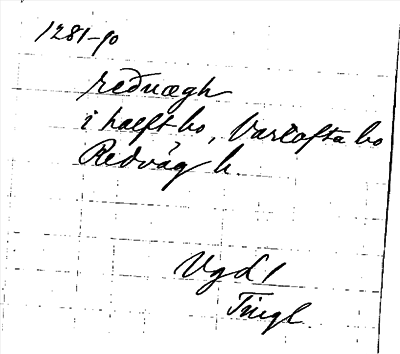 1281-90
reðvægh
i halft bo, Vartofta bo
Redväg h.
Vgd 1
Tingl.